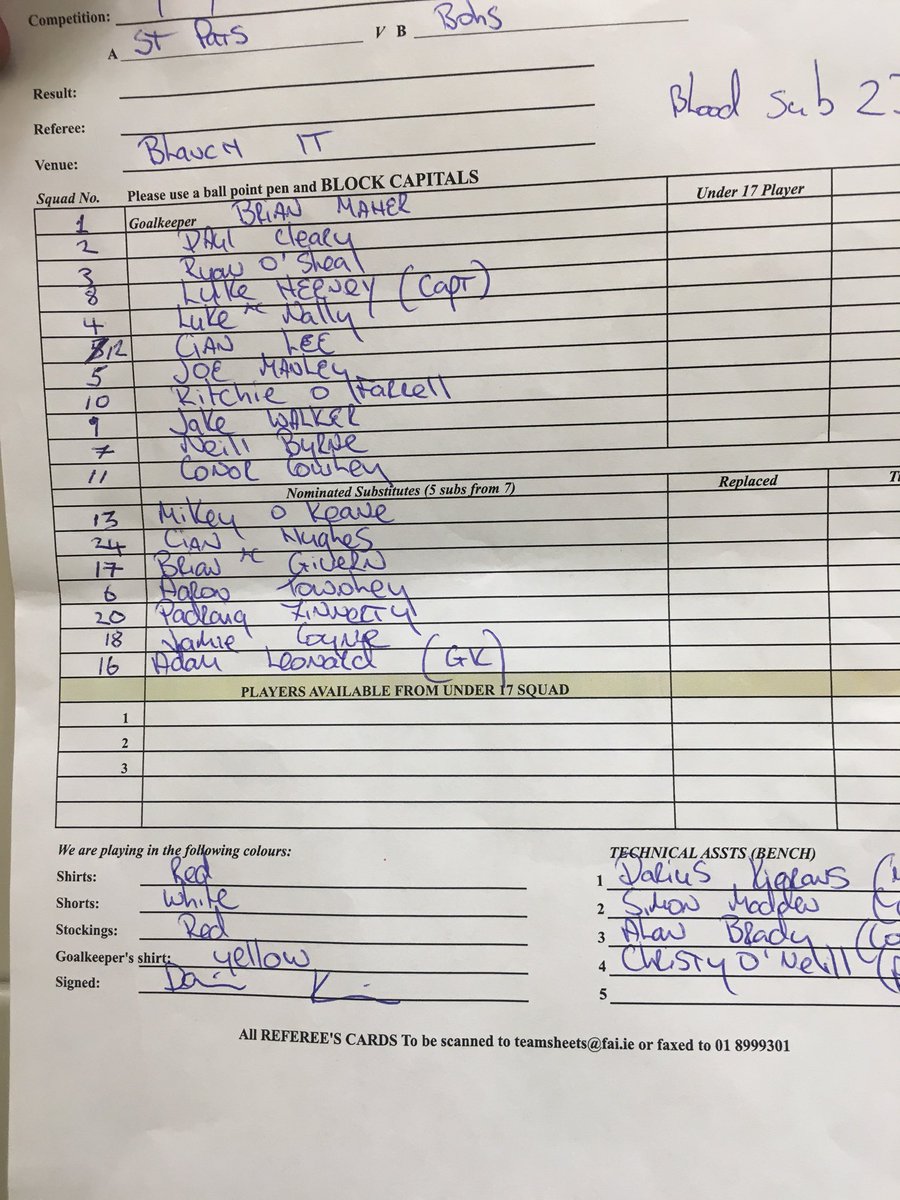 Competition:
A St Pats V B Bohs
Result:
Blood Sub 23
Referee:
Venue: Blanch IT
Squad No. Please use a ball point pen and BLOCK CAPITALS Under 17 Player
1 Goalkeeper BRIAN MAHER
2 Cleary
3 Ryan O'Sheal
8 LUKE HEENEY (CAPT)
4 Luke Mc Nally
12 CIAN LEE
5 JOE MANLEY
10 Ritchie O Farrell
9 Jake WALKER
7 Neill BYRNE
11 CONOR Cowhey
Nominated Substitutes (5 subs from 7) Replaced
13 Mikey O Keane
24 CIAN Hughes
17 BRIAN Mc GIVERN
6 Aaron
20 Padraig
18 Jamie COYNE
16 Adam LEONARD (GK)
PLAYERS AVAILABLE FROM UNDER 17 SQUAD
1
2
3
We are playing in the following colours:
TECHNICAL ASSTS (BENCH)
Shirts: Red
1 DARIUS
Shorts: White
2 SIMON Madden
Stockings: Red
3 ALAN BRADY
Goalkeeper's shirt: yellow
4 CHRISTY O'Neill
Signed:
5
All REFEREE'S CARDS To be scanned to teamsheets@fai.ie or faxed to 01 8999301